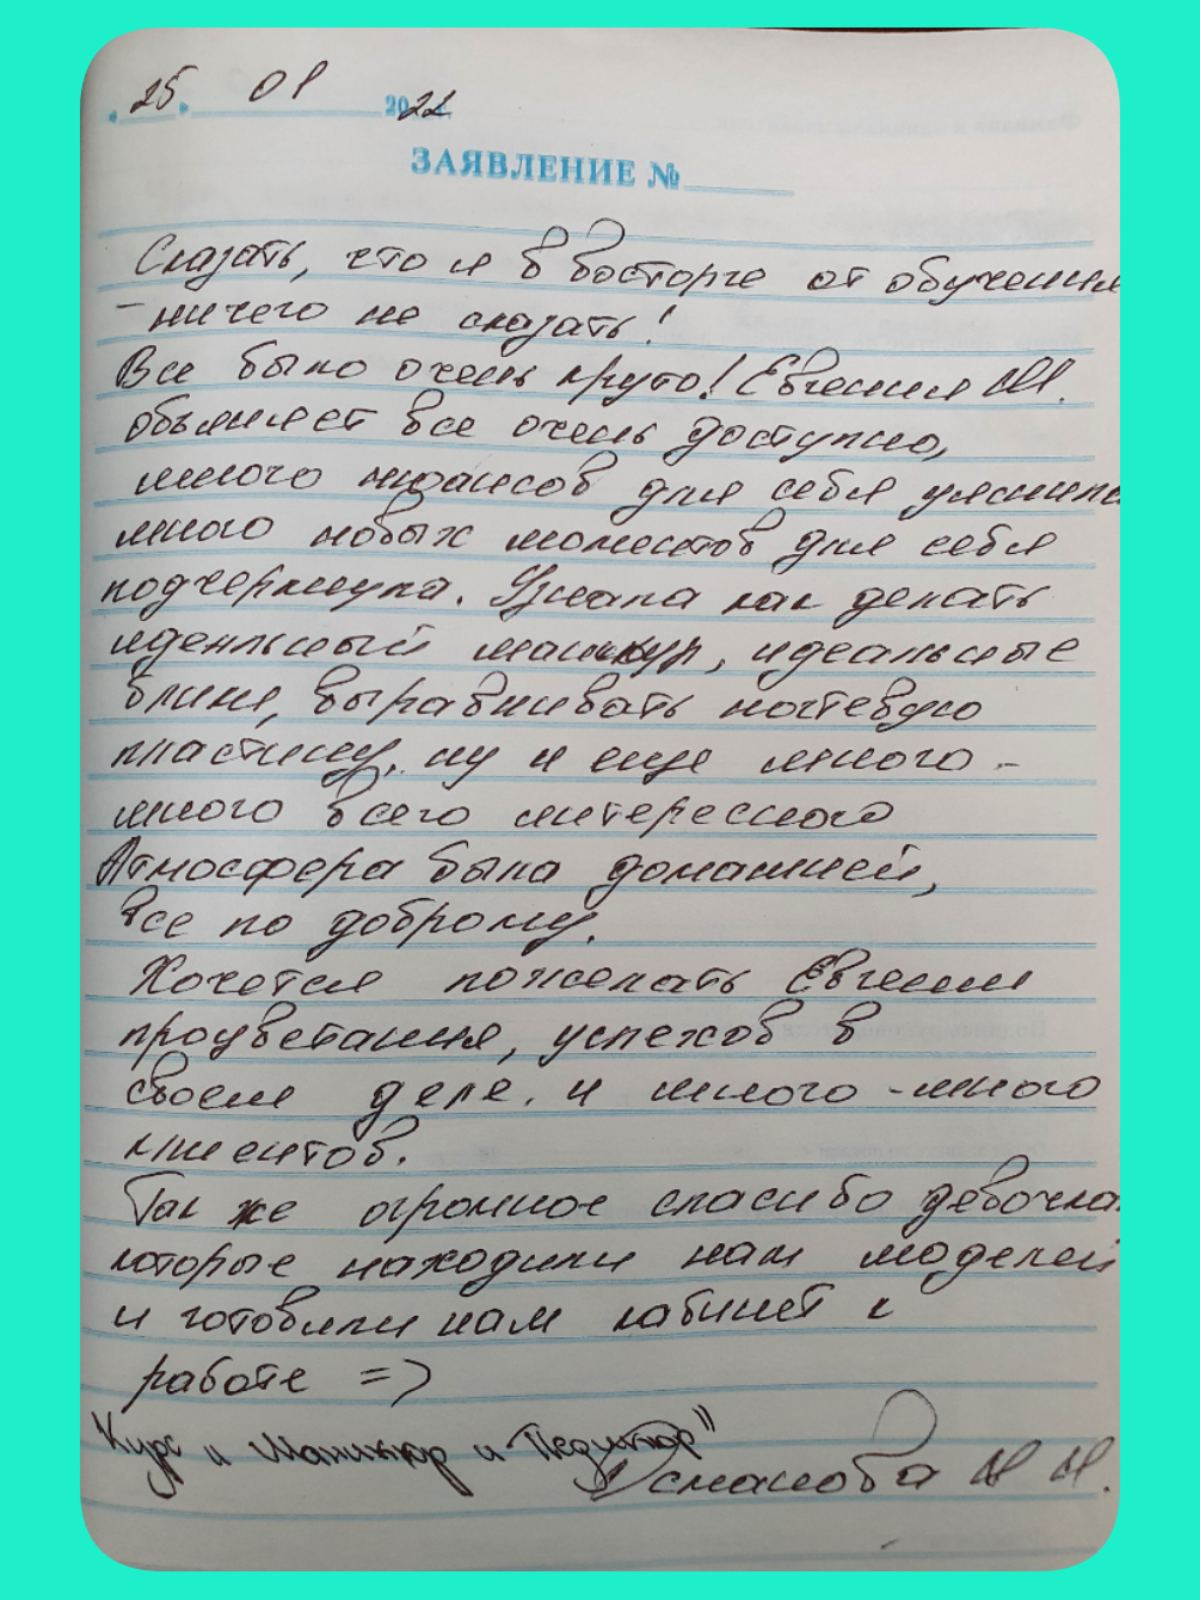 «25» 01 2022 г.
ЗАЯВЛЕНИЕ №
Сказать, что я в восторге от обучения
- ничего не сказать!
Все было очень круто! Евгения М.
объясняет все очень доступно,
много нюансов для себя уяснила
много новых моментов для себя
подчеркнула. Узнала как делать
идеальный маникюр, идеальные
блики, выравнивать ногтевую
пластину, ну и еще много -
много всего интересного
Атмосфера была домашней,
все по доброму.
Хочется пожелать Евгении
процветания, успехов в
своем деле, и много - много
клиентов.
Так же огромное спасибо девочкам
которые находили нам моделей
и готовили нам кабинет к
работе =)
Курс "Маникюр и Педикюр"
Усманова Н И.